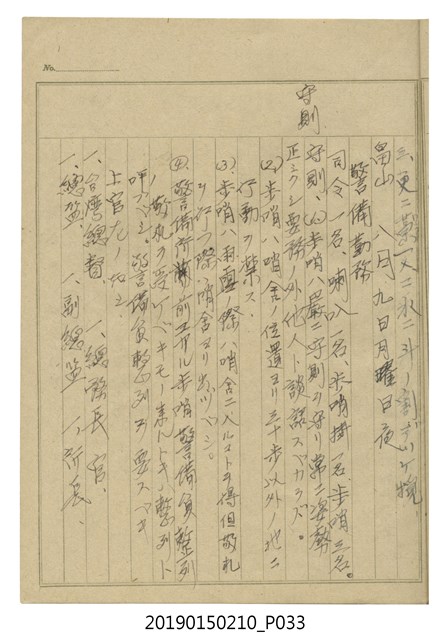 No.
守則
三、更ニ
畠山 八月九日月曜日夜
警備勤務
司令一名、喇叭一名、歩哨掛一名、歩哨三名。
守則、(1)歩哨ハ厳ニ守則ヲ守リ第二姿勢
正シクシ要務ノ外他人ト談話スベカラズ。
(2)歩哨ハ哨舎ノ位置ヨリ三十歩以外ノ地ニ
行動ヲ禁ス。
(3)歩哨ハ雨雪ノ際ハ哨舎ニ入ルコトヲ得但敬礼
ヲ行フ際ハ哨舎ヨリ出ヅベシ。
(4)警備所前 歩哨警備員整列
ノ敬礼ヲ受ケベキモノ来ルトキハ整列ト
呼ブベシ。警備員整列ヲ要スベキ
上官左ノ如シ
一、台湾総督 一、総務長官、
一、総監、 一、副総監 一、所長、
20190150210_P033